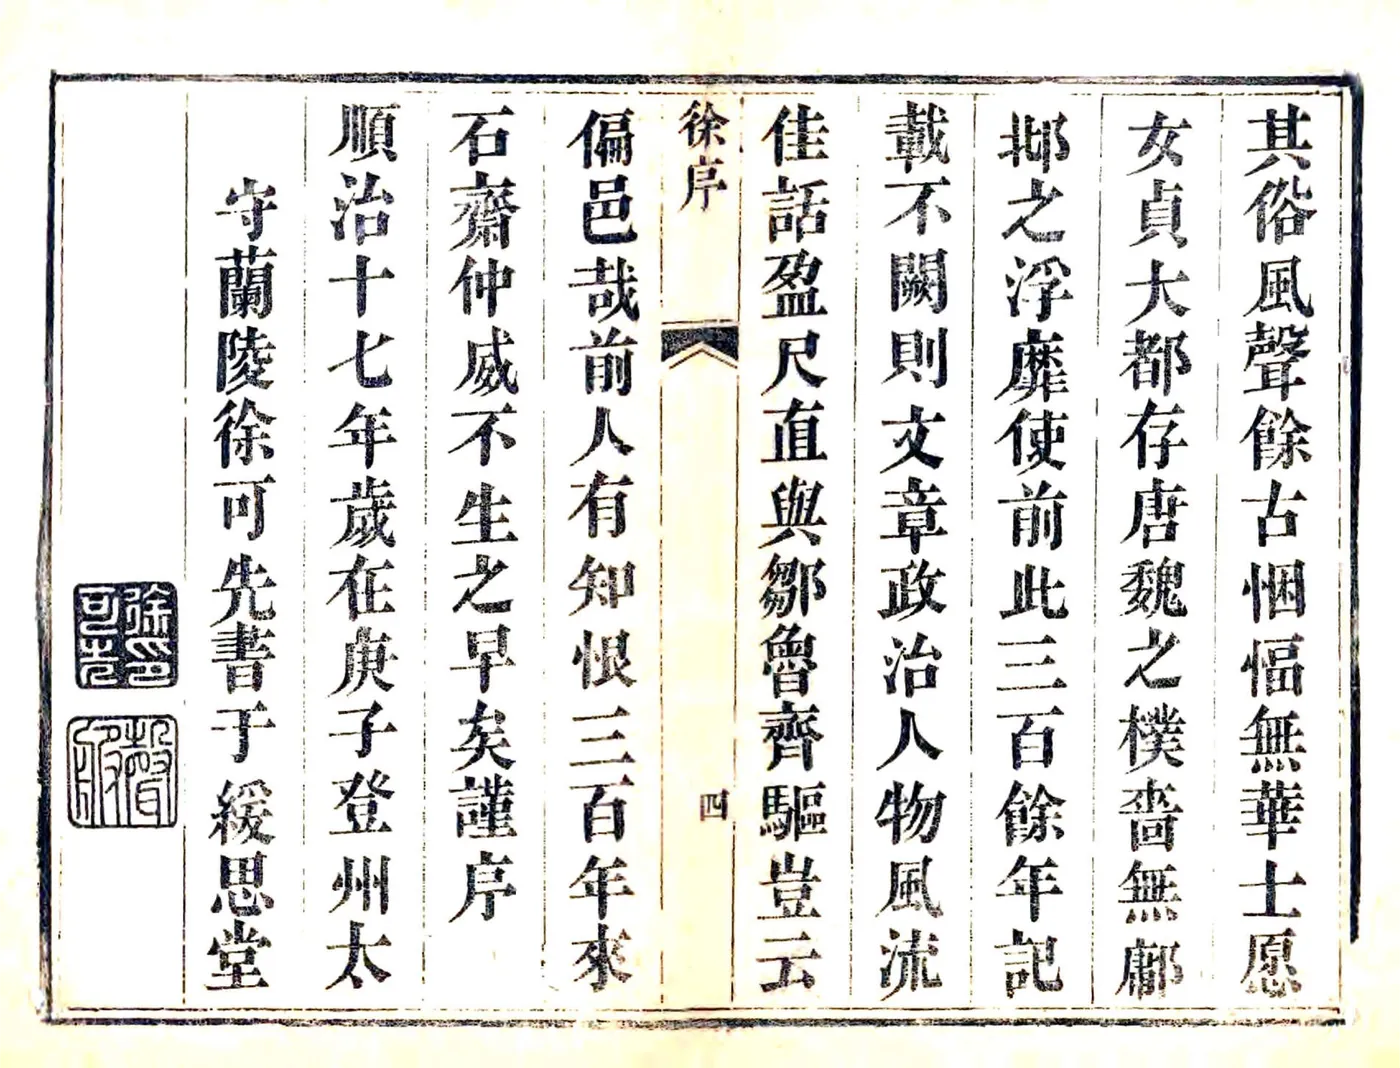 其俗風聲餘古悃愊無華士愿
女貞大都存唐魏之樸嗇無鄘
邶之浮靡使前此三百餘年記
載不闕則文章政治人物風流
佳話盈尺直與鄒魯齊驅豈云
徐序
四
偏邑哉前人有知恨三百年來
石齋仲威不生之早矣謹序
順治十七年歲在庚子登州太
守蘭陵徐可先書于緩思堂
徐可先印